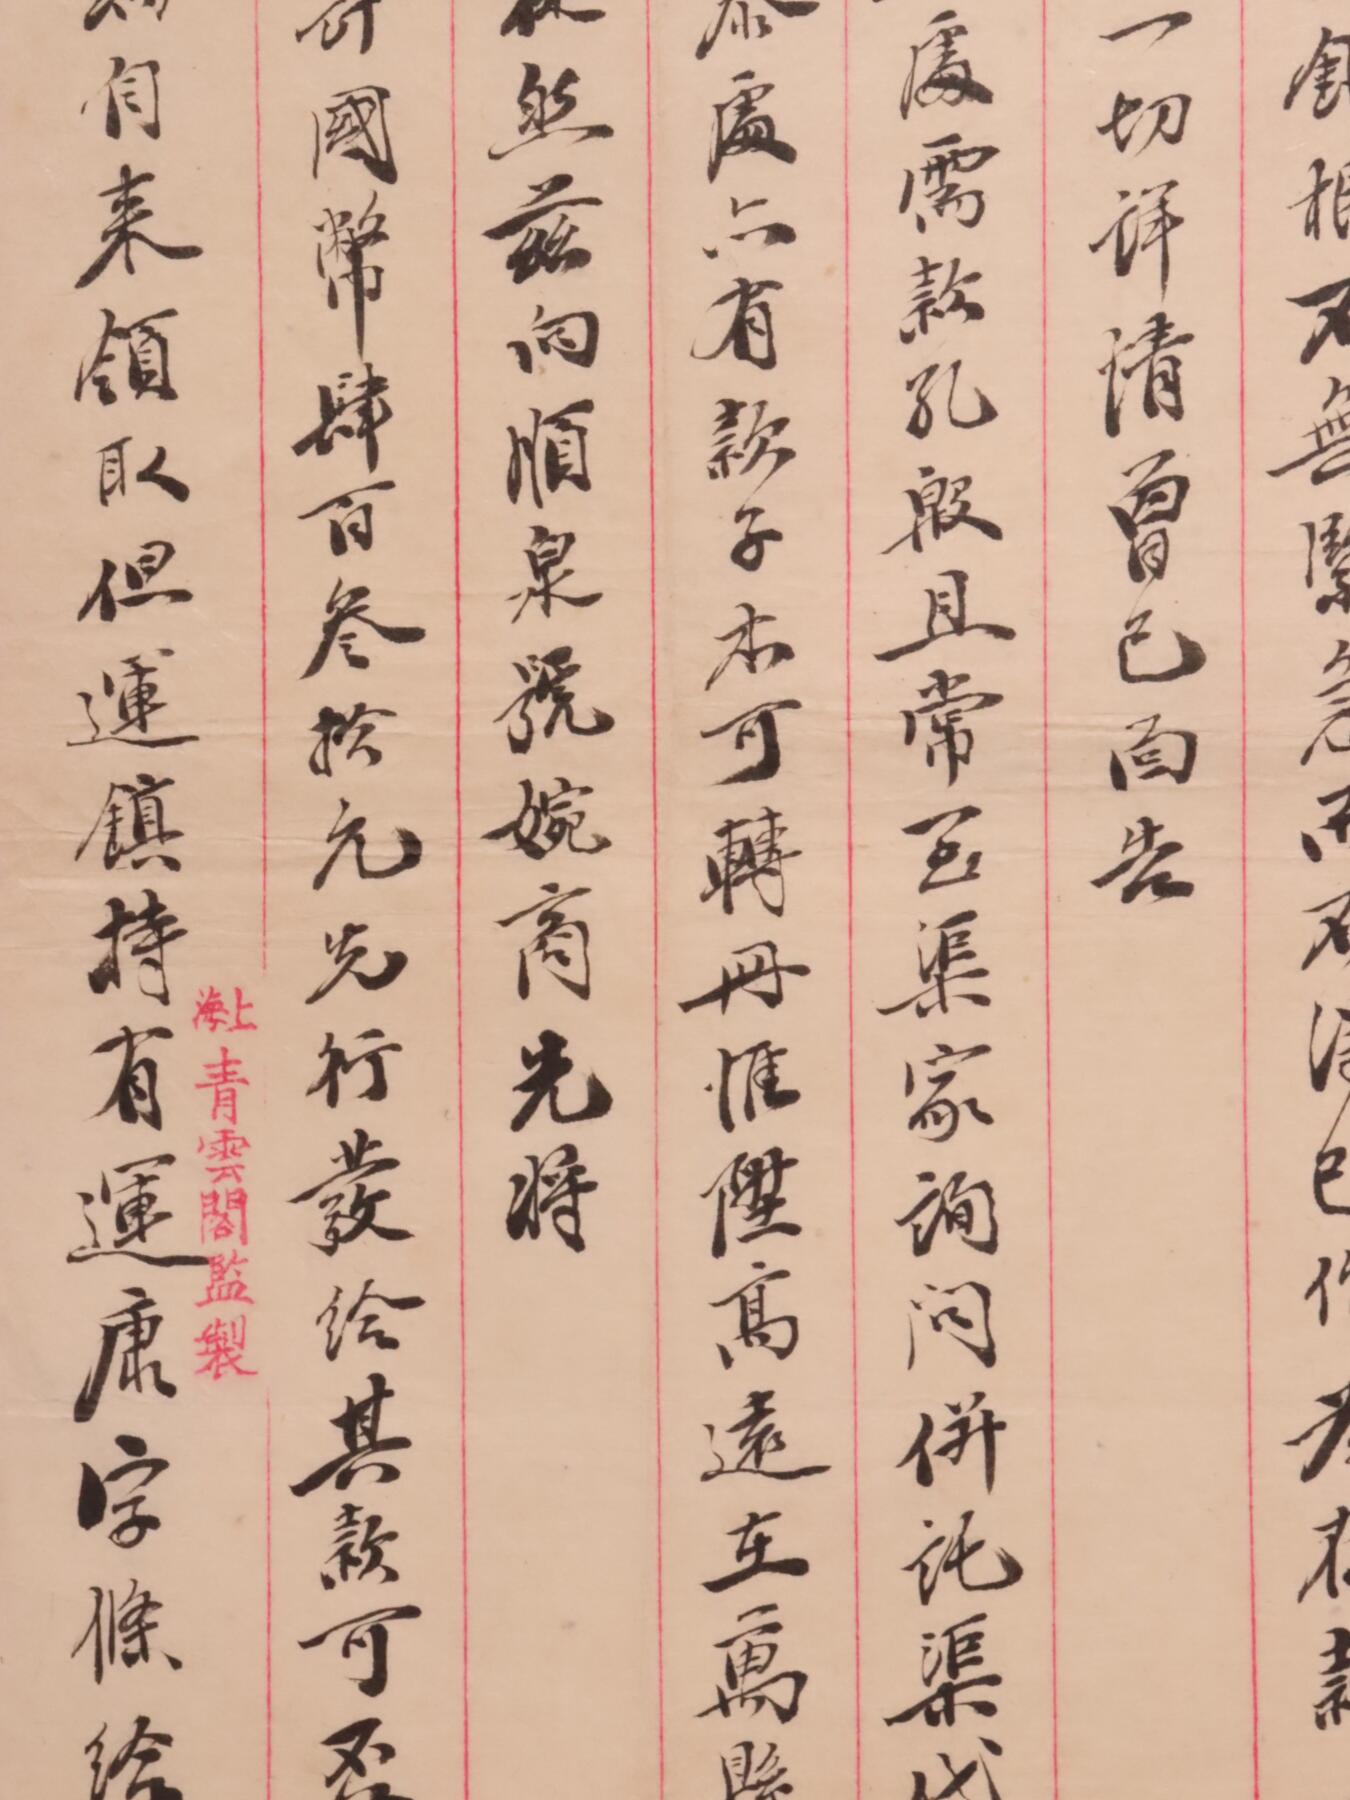 根不無緊急而不得已作為存款
一切詳情曾已面告
處需款孔殷且常至渠家詢問併託渠代
泰處亦有款子本可轉冊惟陞高遠在萬縣
然茲向順泉號婉商先將
計國幣肆百叁拾元先行發給其款可否
自来領取但運鎮持有運康字條給
上海青雲閣監製